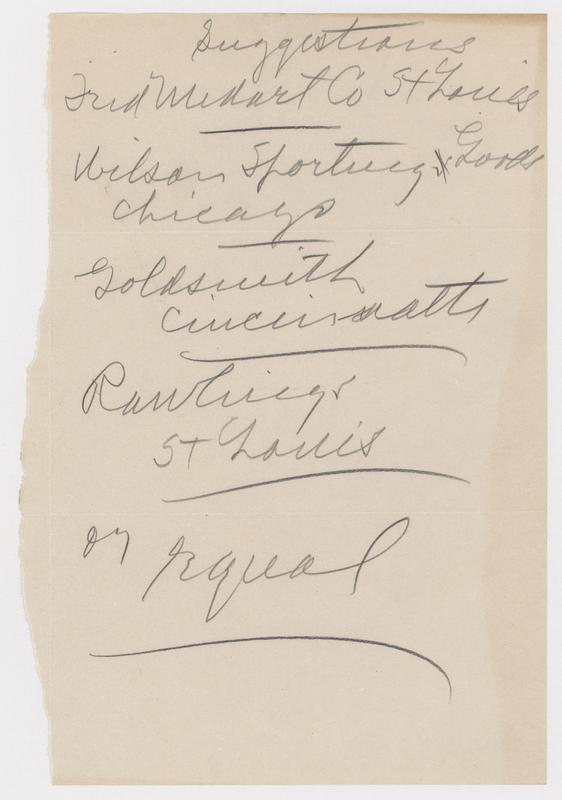 Suggestions
Fred Medart Co St Louis
Wilson Sporting Goods
Chicago
Goldsmith
Cincinnatti
Rawlings
St Louis
or Equal